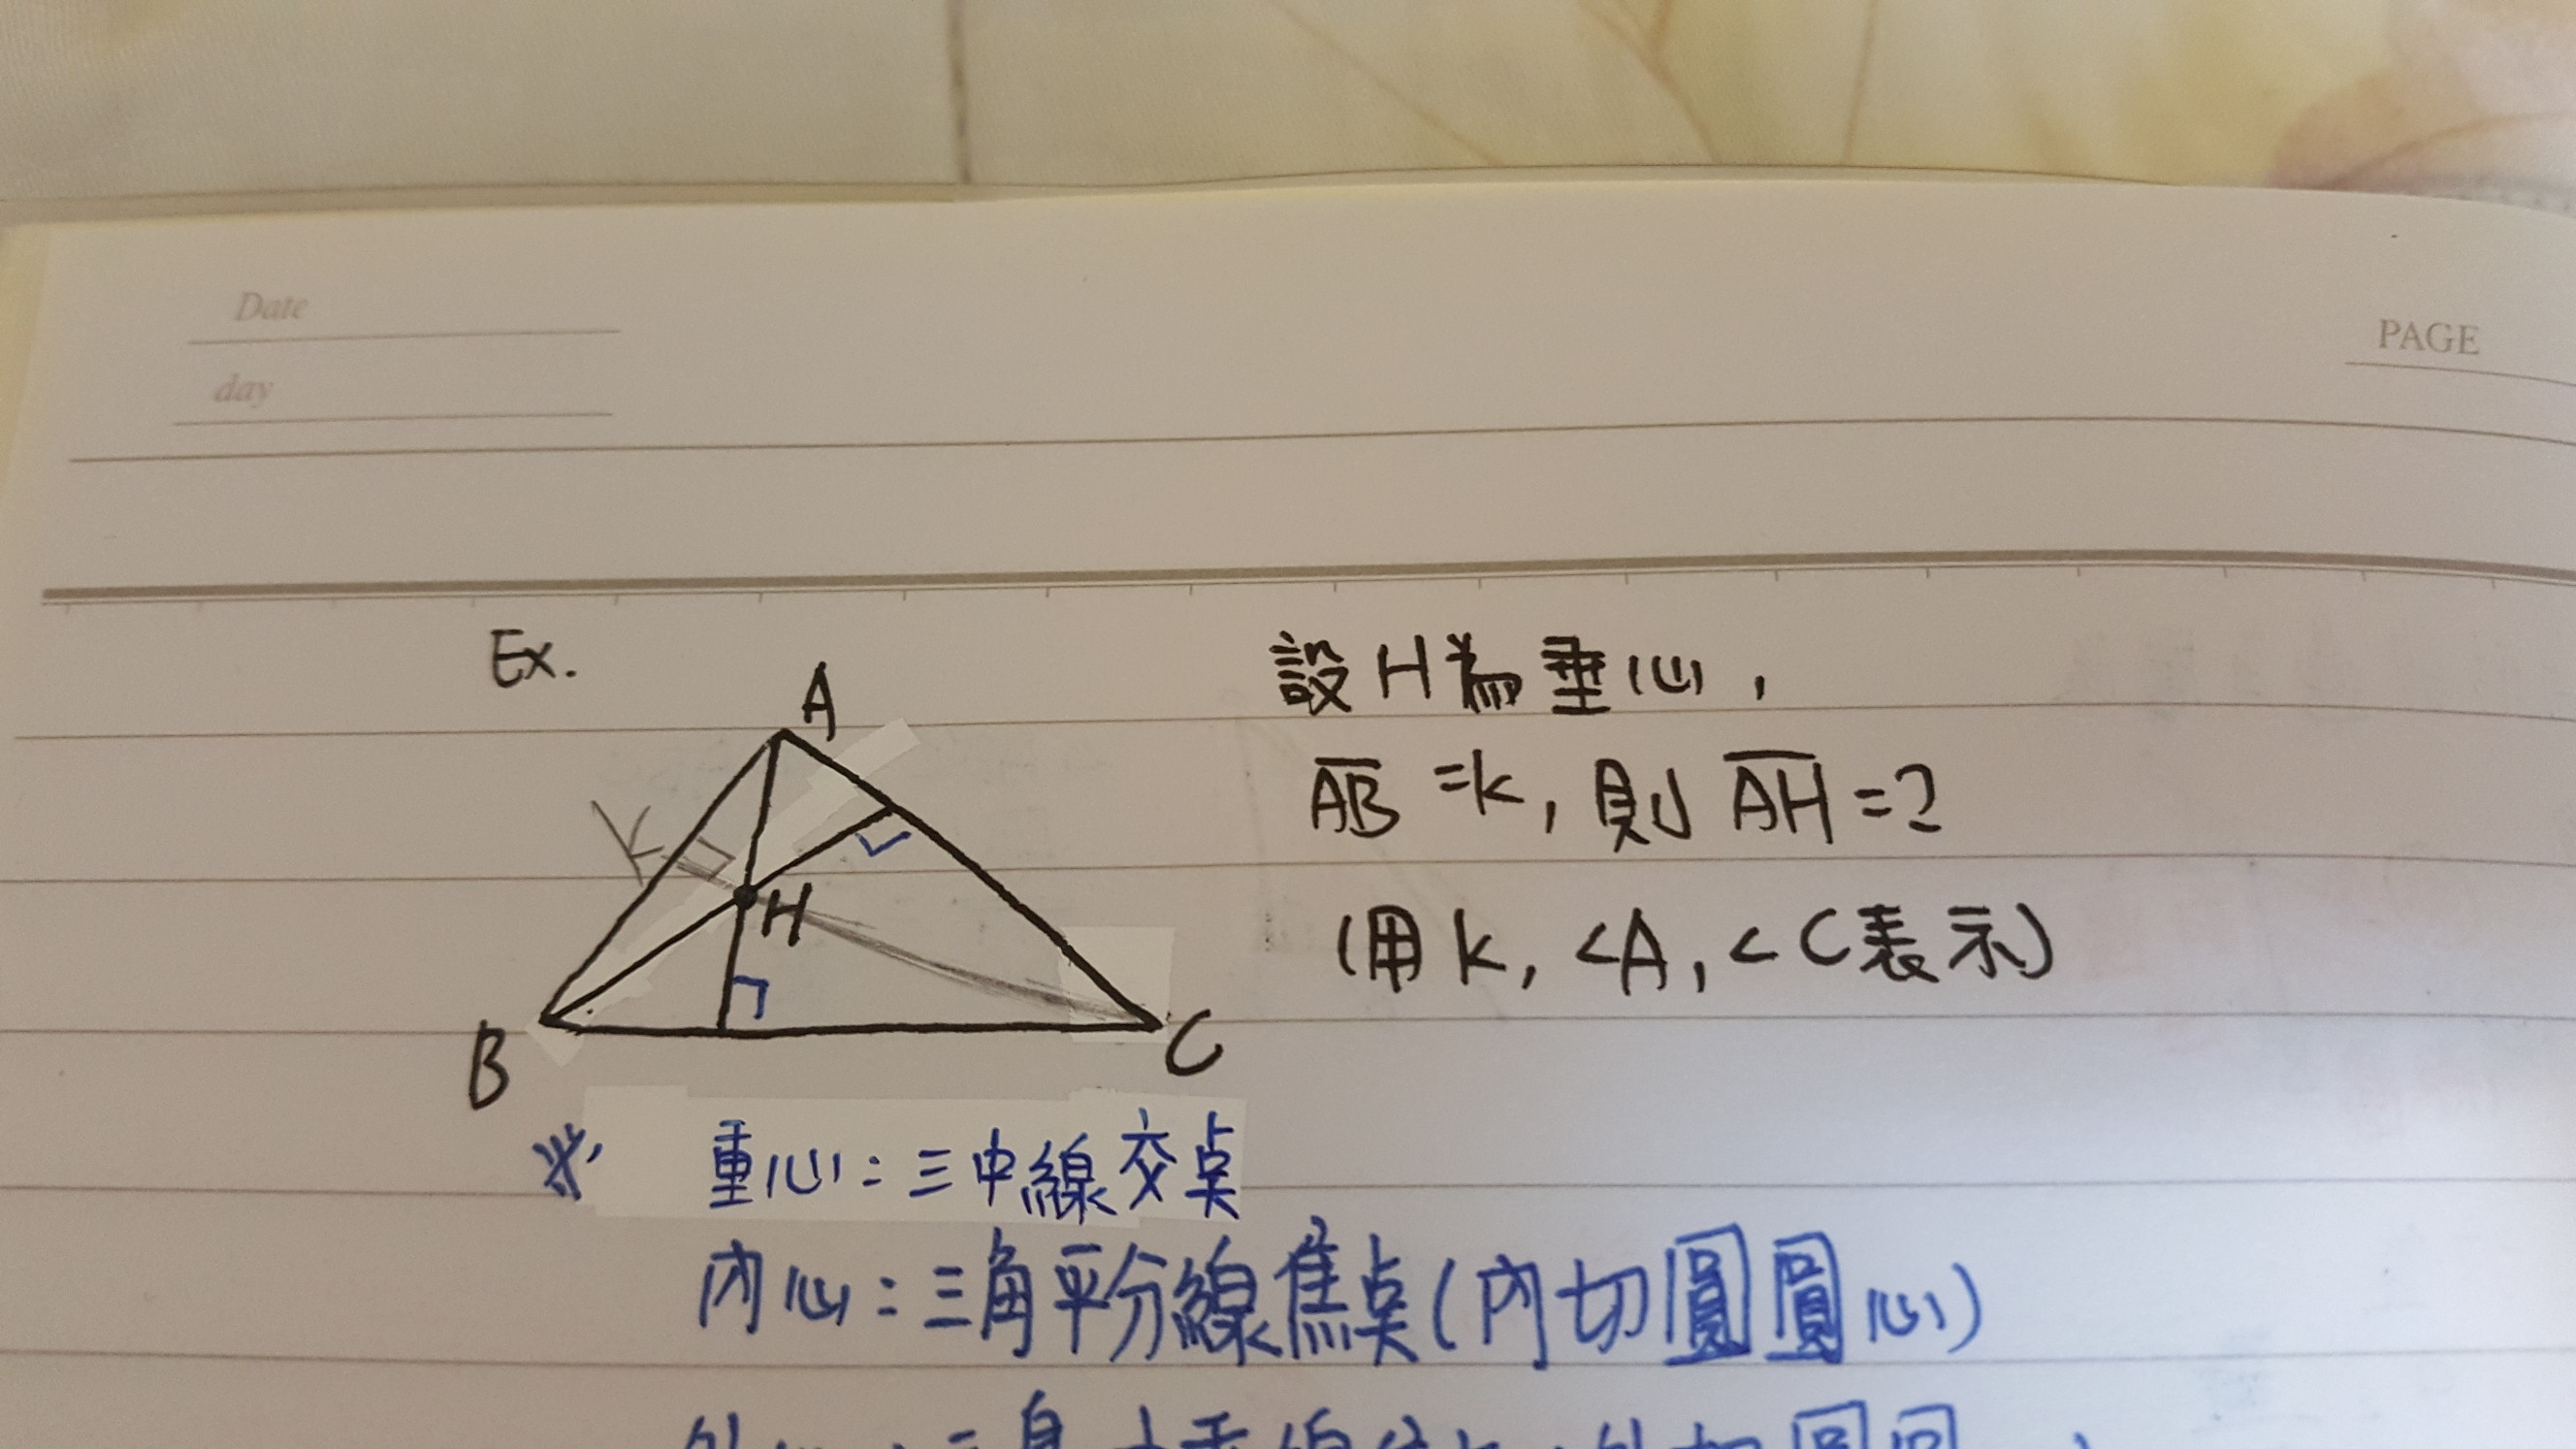 Date
day
PAGE
Ex.
設H為垂心,
A
AB=k, 則AH=?
K
H
(用k, <A, <C表示)
B
C
※ 重心:三中線交点
內心:三角平分線焦点(內切圓圓心)
外心:三